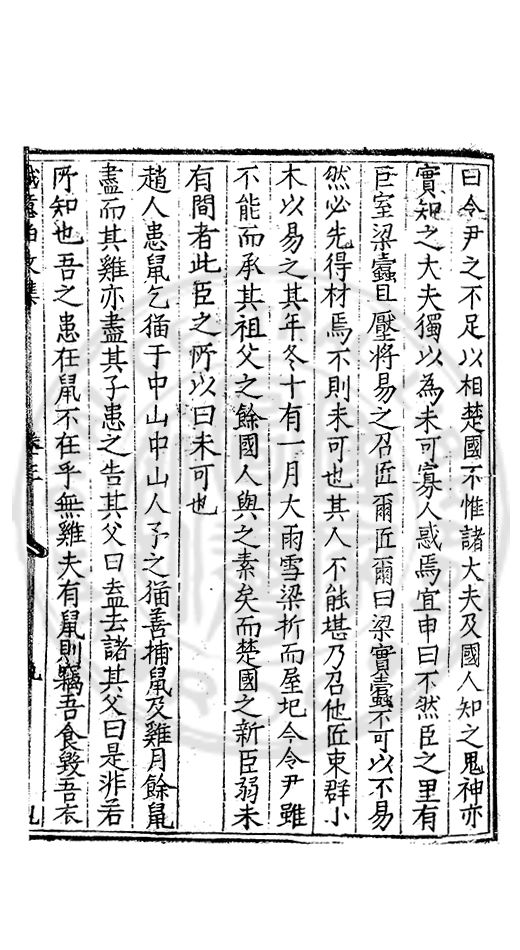 曰令尹之不足以相楚國不惟諸大夫及國人知之鬼神亦
實知之大夫獨以為未可寡人惑焉宜申曰不然臣之里有
巨室梁蠹且壓將易之召匠爾匠爾曰梁實蠹不可以不易
然必先得材焉不則未可也其人不能堪乃召他匠束群小
木以易之其年冬十有一月大雨雪梁折而屋圯今令尹雖
不能而承其祖父之餘國人與之素矣而楚國之新臣弱未
有間者此臣之所以曰未可也
趙人患鼠乞猫于中山中山人予之猫善捕鼠及雞月餘鼠
盡而其雞亦盡其子患之告其父曰盍去諸其父曰是非若
所知也吾之患在鼠不在乎無雞夫有鼠則竊吾食毀吾衣
誠意伯文集